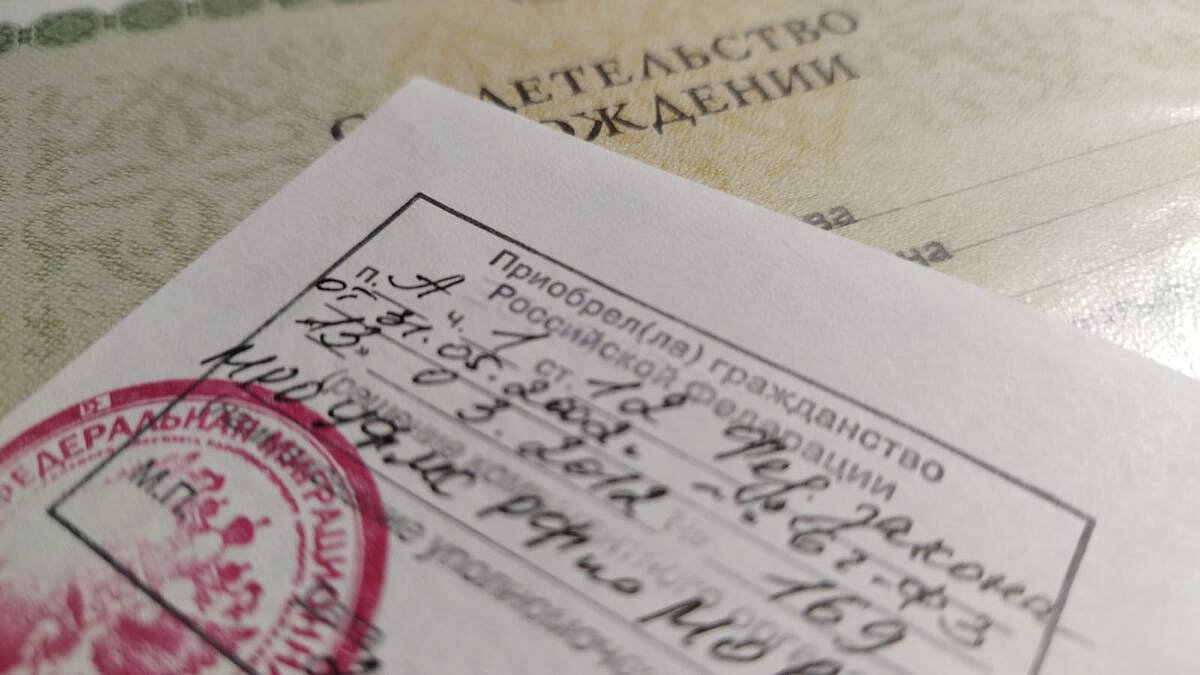 ДЕТЕЛЬСТВО
ОЖДЕНИИ
ва
на
Приобрел(ла) гражданство
Российской Федерации
п. А ч. 1 ст. 12 Фед. закона
от 31.05.2002г. № 62-ФЗ
13 03.2012 № 169
(решение
МРО УФМС РФ по МО
уполномоче
ФЕДЕРАЛЬНАЯ МИГРАЦИОНН
М.П.